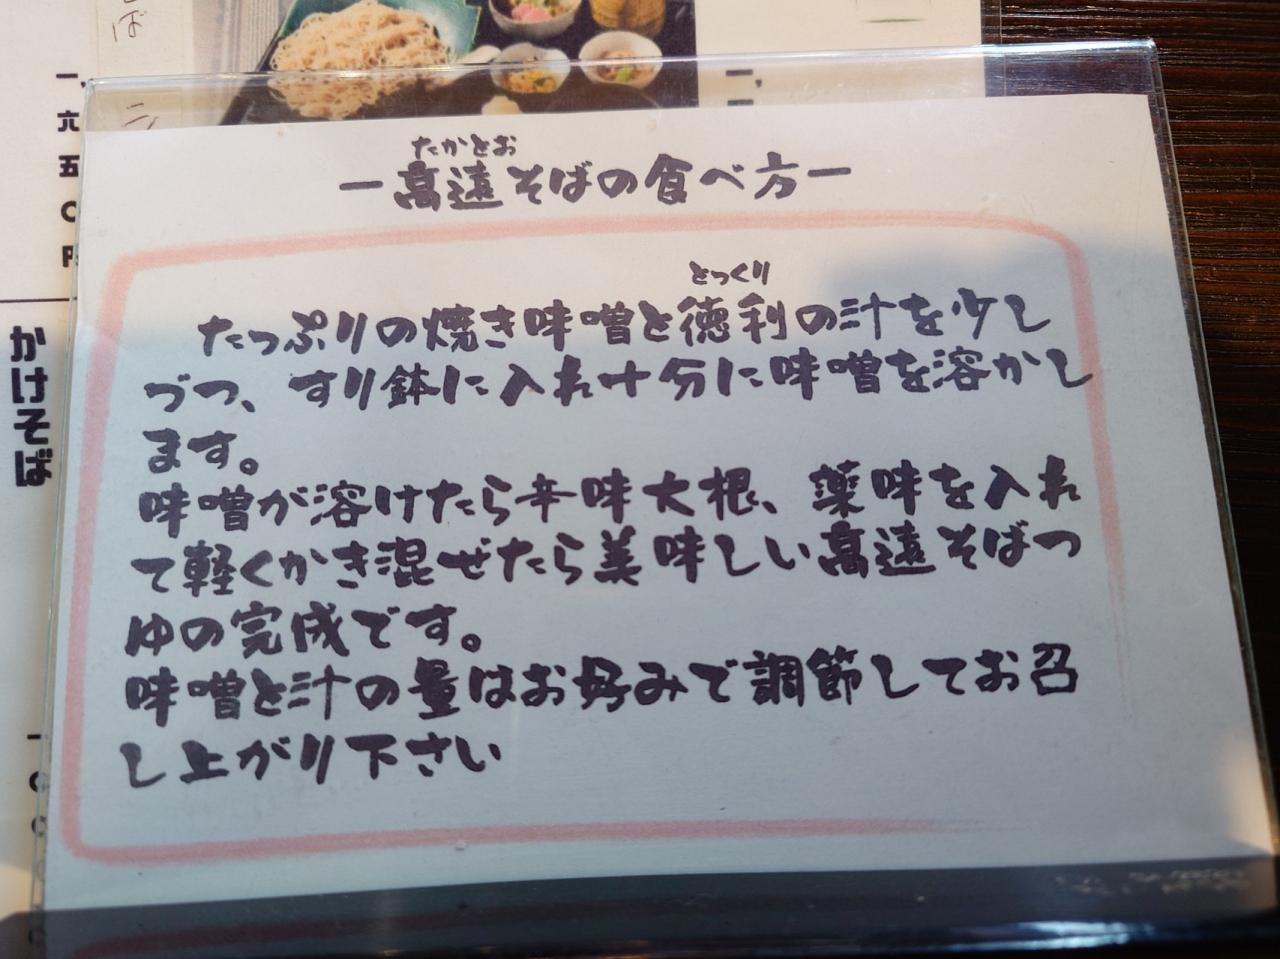 たかとお
ー高遠そばの食べ方ー
とっくり
たっぷりの焼き味噌と徳利の汁を少し
づつ、すり鉢に入れ十分に味噌を溶かし
ます。
味噌が溶けたら辛味大根、薬味を入れ
て軽くかき混ぜたら美味しい高遠そばつ
ゆの完成です。
味噌と汁の量はお好みで調節してお召
し上がり下さい
かけそば
一、六五〇円